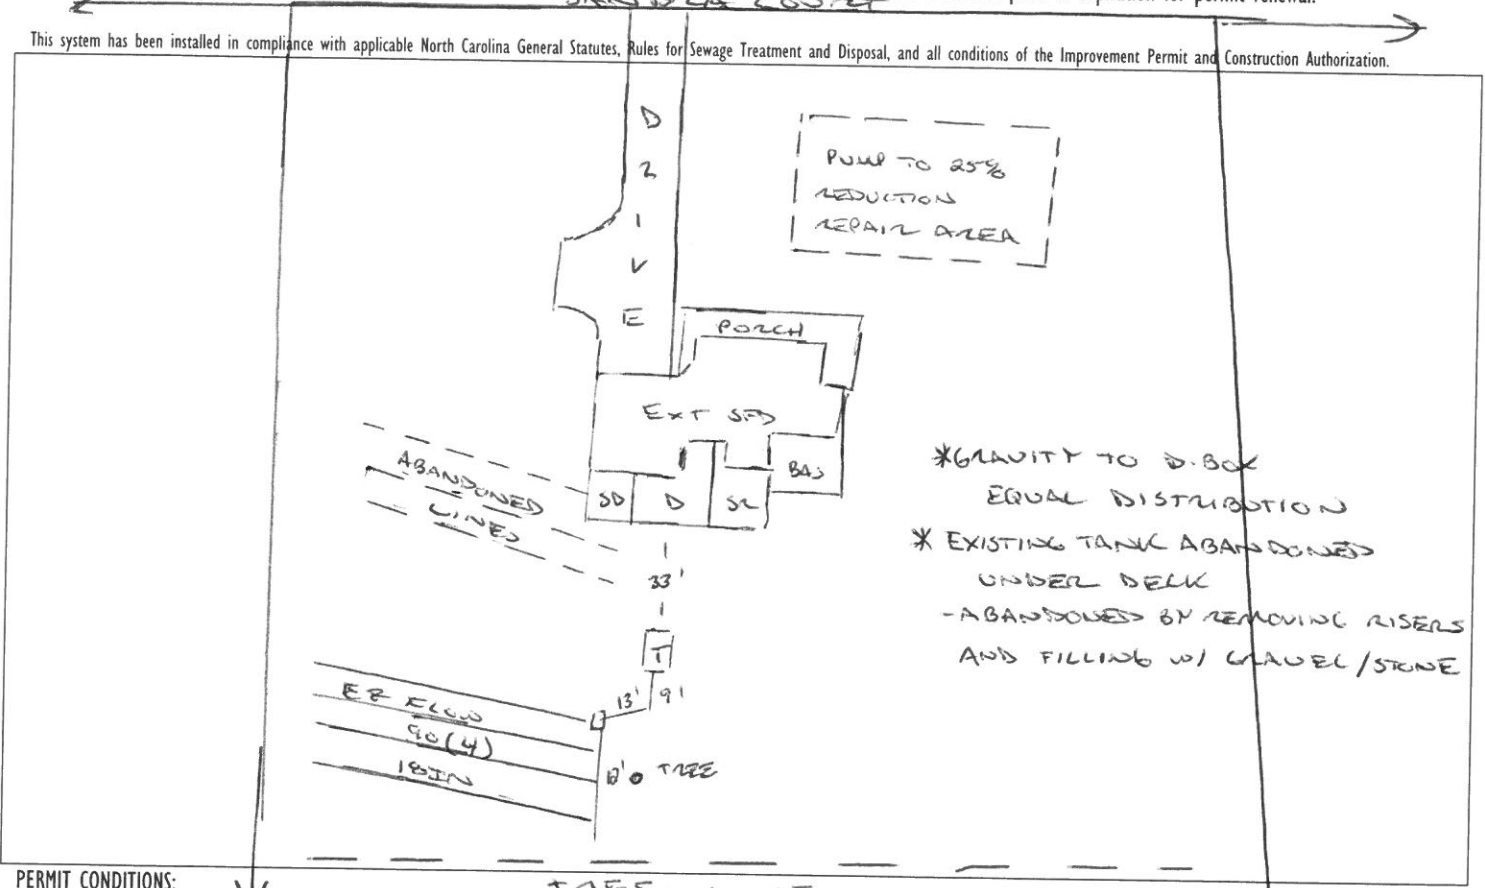 for permit renewal.
This system has been installed in compliance with applicable North Carolina General Statutes, Rules for Sewage Treatment and Disposal, and all conditions of the Improvement Permit and Construction Authorization.
DRIVE
PUMP TO 25%
REDUCTION
REPAIR AREA
PORCH
EXT SFD
SD
D
SR
BAS
ABANDONED
LINES
33'
T
13'
9'
EZ FLOW
90(4)
18IN
TREE
*GRAVITY TO D.BOX
EQUAL DISTRIBUTION
* EXISTING TANK ABANDONED
UNDER DECK
-ABANDONED BY REMOVING RISERS
AND FILLING W/ GRAVEL/STONE
PERMIT CONDITIONS: